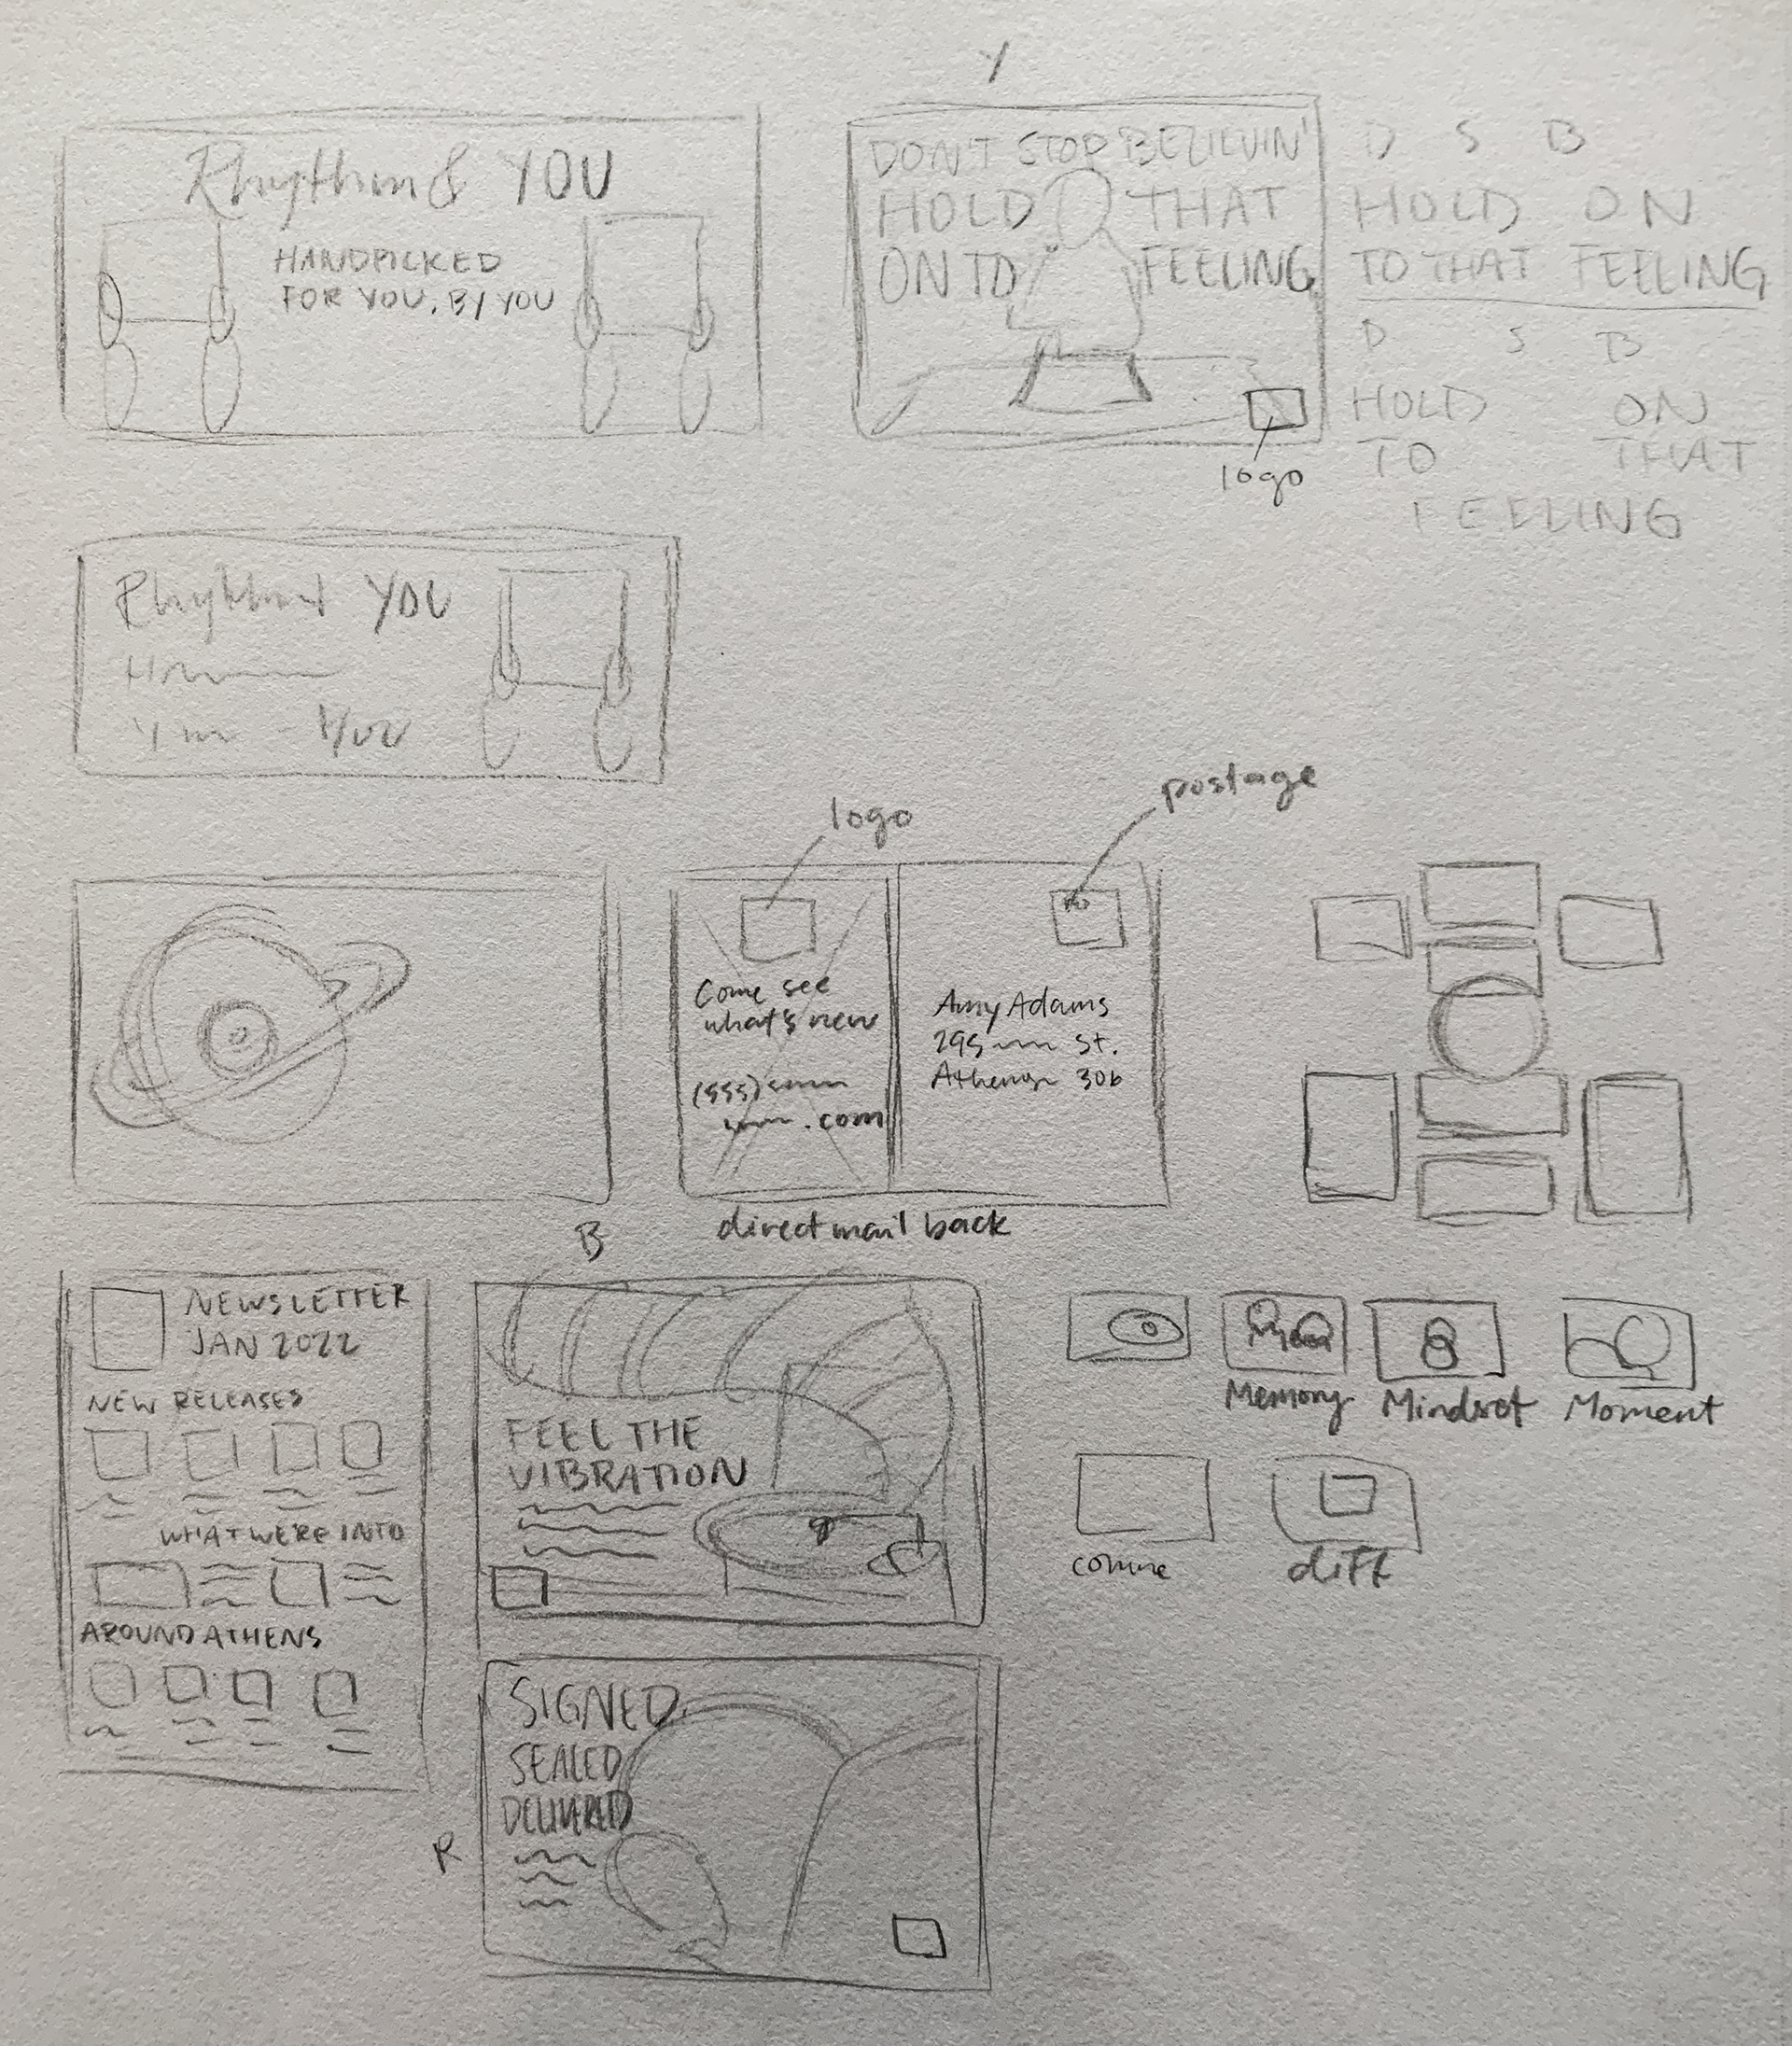 Y
Rhythm & YOU
HANDPICKED
FOR YOU, BY YOU
DON'T STOP BELIEVIN'
HOLD THAT
ON TO FEELING
logo
D S B
HOLD ON
TO THAT FEELING
D S B
HOLD ON
TO THAT
FEELING
Rhythm & YOU
You
logo
postage
Come see
what's new
(555)
.com
Amy Adams
295 St.
Athens 306
direct mail back
B
NEWSLETTER
JAN 2022
NEW RELEASES
WHAT WERE INTO
AROUND ATHENS
FEEL THE
VIBRATION
Memory
Mindset
Moment
diff
SIGNED,
SEALED
DELIVERED
R